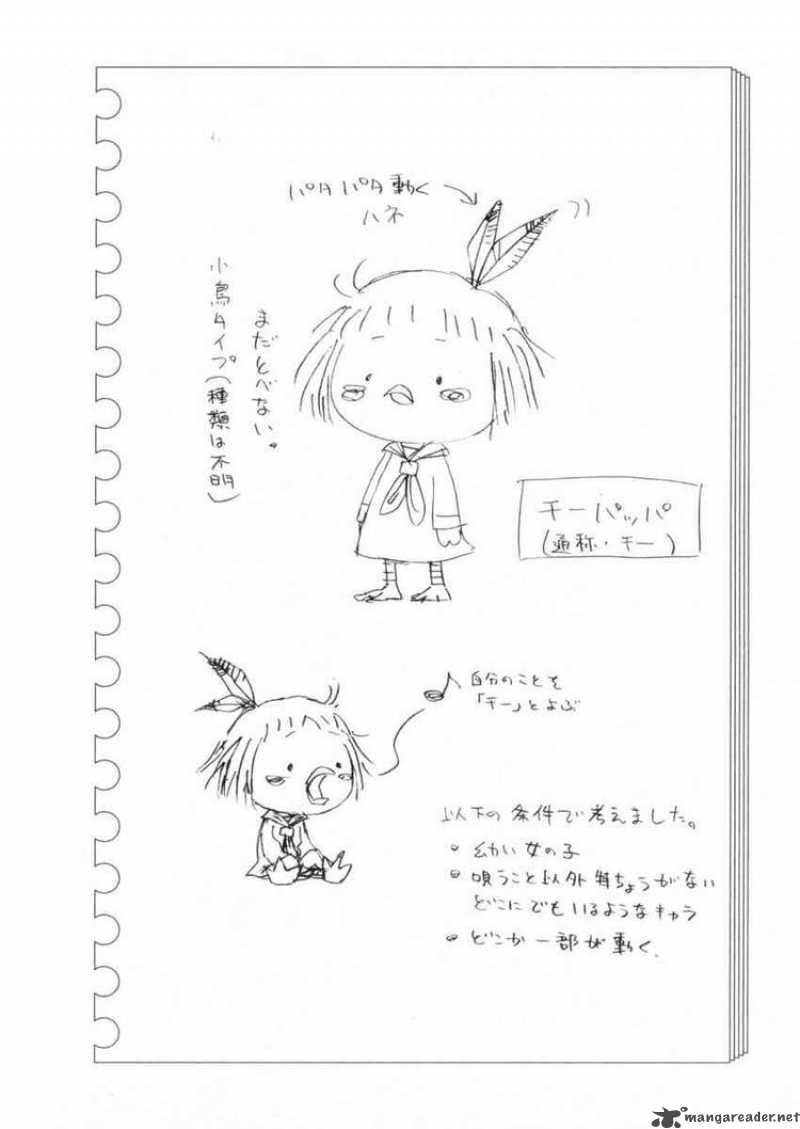 パタパタ動く
ハネ
まだとべない。
小鳥タイプ(種類は不明)
チーパッパ
(通称・チー)
自分のことを
「チー」とよぶ
以下の条件で考えました。
• 幼い女の子
• 唄うこと以外特ちょうがない
どこにでもいるようなキャラ
• どこか一部が動く.
mangareader.net